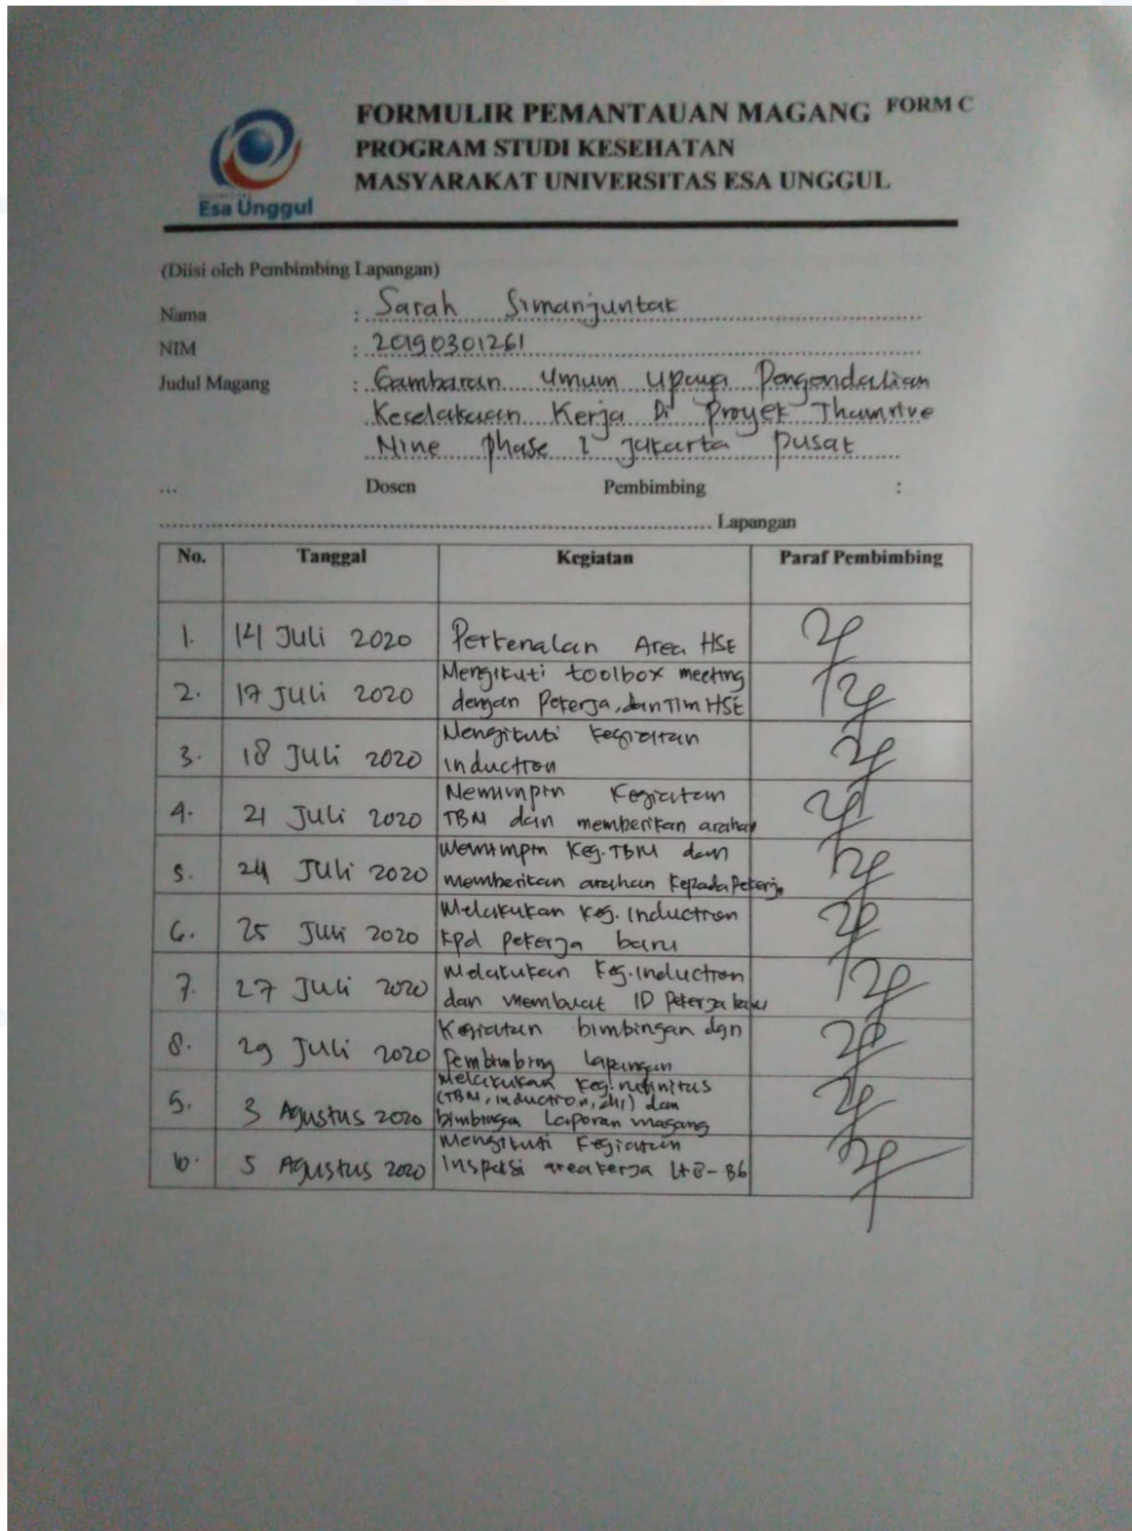 FORMULIR PEMANTAUAN MAGANG FORM C
PROGRAM STUDI KESEHATAN
MASYARAKAT UNIVERSITAS ESA UNGGUL
Esa Unggul
(Diisi oleh Pembimbing Lapangan)
Nama : Sarah Simanjuntak
NIM : 20190301261
Judul Magang : Gambaran Umum Upaya Pengendalian
Kecelakaan Kerja Di Proyek Thamrine
Nine phase 1 Jakarta Pusat
... Dosen Pembimbing :
Lapangan
No. Tanggal Kegiatan Paraf Pembimbing
1. 14 Juli 2020 Perkenalan Area HSE
2. 17 Juli 2020 Mengikuti toolbox meeting
dengan Pekerja, dan Tim HSE
3. 18 Juli 2020 Mengikuti kegiatan
induction
4. 21 Juli 2020 Memimpin Kegiatan
TBM dan memberikan arahan
5. 24 Juli 2020 Memimpin Keg. TBM dan
memberikan arahan kepada Pekerja
6. 25 Juli 2020 Melakukan Keg. Induction
kpd pekerja baru
7. 27 Juli 2020 Melakukan Keg. Induction
dan membuat ID Pekerja baru
8. 29 Juli 2020 Kegiatan bimbingan dgn
Pembimbing lapangan
9. 3 Agustus 2020 Melakukan Keg.
(TBM, induction, ) dan
bimbingan Laporan magang
10. 5 Agustus 2020 Mengikuti Kegiatan
Inspeksi area kerja